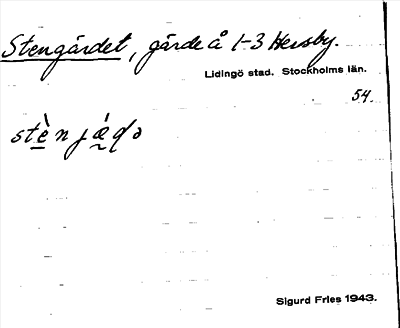 Stengärdet, gärde å 1-3 Hersby.
Lidingö stad. Stockholms län.
54.
Sigurd Fries 1943.